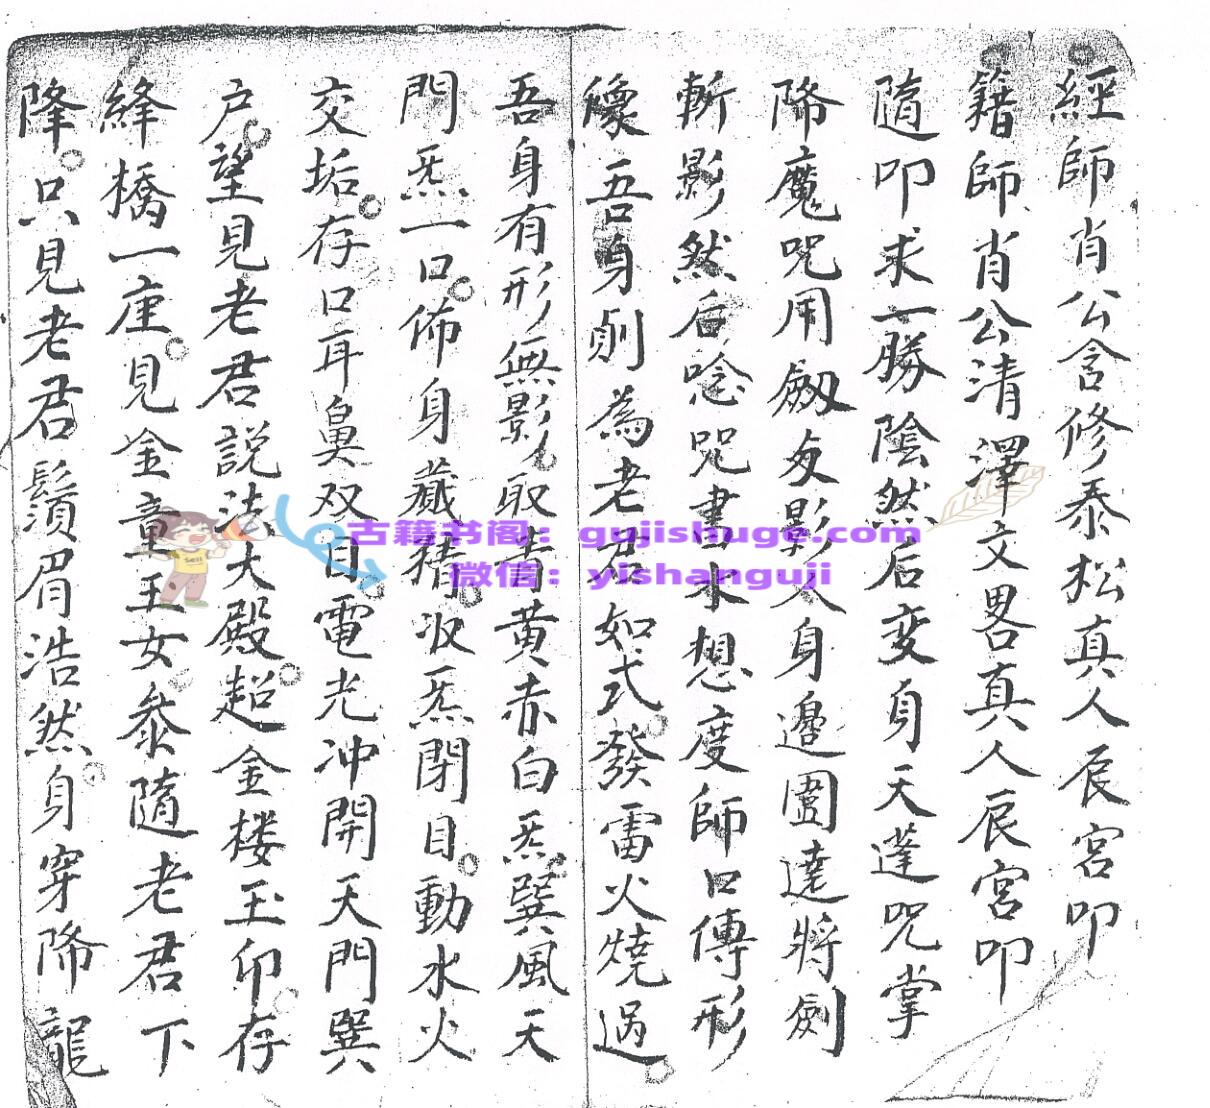 經師肖公含修泰松真人辰宮叩
籍師肖公清澤文畧真人辰宮叩
隨叩求一勝陰然后变身天蓬咒掌
降魔咒用劔友影人身邊圍遶將劍
斬影然后唸咒書水想度師口傳形
像吾身則為老君如式發雷火燒过
吾身有形無影取青黃赤白炁巽風天
門炁一口佈身藏精收炁閉目動水火
交垢存口耳鼻双目電光冲開天門巽
户望見老君説法大殿超金楼玉卯存
絳橋一座見金童玉女叅隨老君下
降只見老君鬚眉浩然身穿降龍
古籍书阁：gujishuge.com
微信：yishanguji